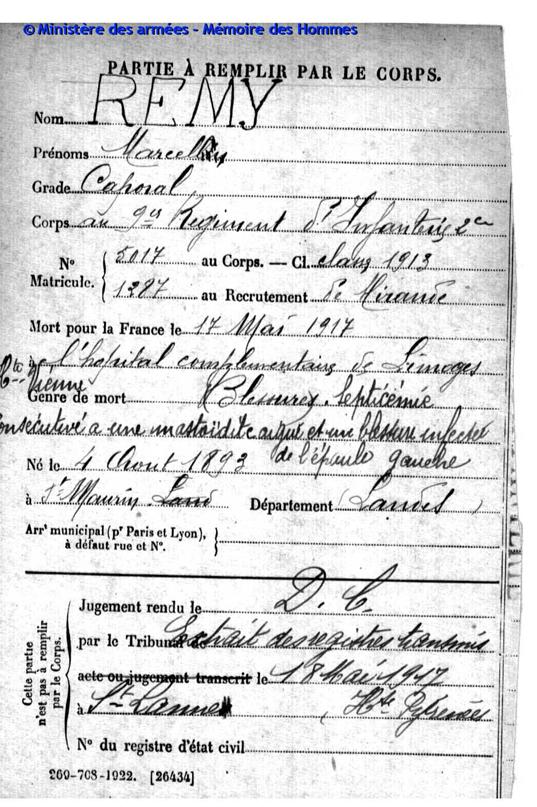 © Ministère des armées - Mémoire des Hommes
PARTIE À REMPLIR PAR LE CORPS.
Nom REMY
Prénoms Marcellin
Grade Caporal
Corps au 9e Régiment d'Infanterie
N° Matricule. { 5017 au Corps. — Cl. classe 1913
1387 au Recrutement de Mirande
Mort pour la France le 17 Mai 1917
à l'hôpital complémentaire de Limoges
Hte Vienne
Genre de mort Blessures. Septicémie
consécutive a une mastoïdite aiguë et un blessure infectée
de l'épaule gauche
Né le 4 Aout 1893
à St Maurin Département Landes
Arrt municipal (pr Paris et Lyon), à défaut rue et N°. }
Cette partie n'est pas à remplir par le Corps.
Jugement rendu le D. C.
par le Tribunal de Extrait des registres transmis
acte ou jugement transcrit le 18 Mai 1917
à St Lanne Htes Pyrénées
N° du registre d'état civil
260-708-1922. [26434]